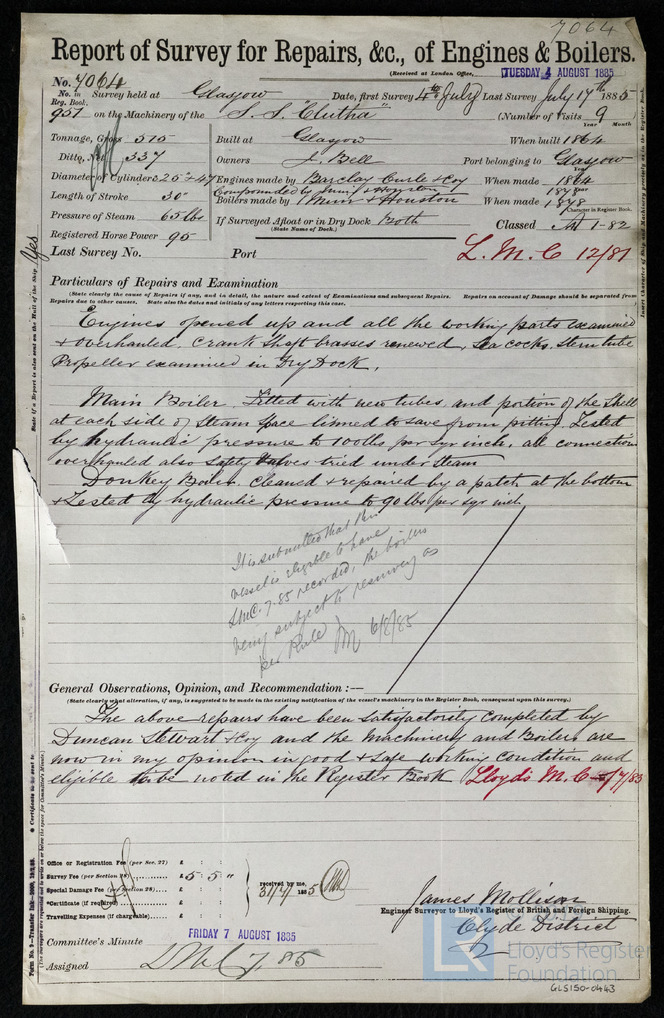 7064
Report of Survey for Repairs, &c., of Engines & Boilers.
(Received at London Office, TUESDAY 4 AUGUST 1885
No. 7064
No. in Survey held at Glasgow Date, first Survey 4th July Last Survey July 17th 1885
Reg. Book.
957 on the Machinery of the S.S. "Clutha" (Number of Visits 9
Year Month
Tonnage, Gross 515 Built at Glasgow When built 1864
Ditto, Net 337 Owners J. Bell Port belonging to Glasgow
Diameter of Cylinders 25" + 47 Engines made by Barclay Curle & Coy When made 1864
Compounded by Muir & Houston 1878
Length of Stroke 30" Boilers made by Muir & Houston When made 1878
Pressure of Steam 65 lbs If Surveyed Afloat or in Dry Dock Both Classed A1 1-82
(State Name of Dock.)
Character in Register Book.
Registered Horse Power 95
Last Survey No. Port L.M.C 12/81
Particulars of Repairs and Examination
(State clearly the cause of Repairs if any, and in detail, the nature and extent of Examinations and subsequent Repairs. Repairs on account of Damage should be separated from
Repairs due to other causes. State also the dates and initials of any letters respecting this case.
Engines opened up and all the working parts examined
& overhauled. Crank Shaft brasses renewed, Sea cocks, Stern tube
Propeller examined in Dry Dock.
Main Boiler. Fitted with new tubes, and portion of the Shell
at each side of Steam Space linned to save from pitting. Tested
by hydraulic pressure to 100 lbs per sqr inch, all connections
overhauled also Safety Valves tried under Steam
Donkey Boiler. Cleaned & repaired by a patch at the bottom
& Tested by hydraulic pressure to 90 lbs per sqr inch.
It is submitted that this
vessel is eligible to have
LMC. 7.85 recorded, the boilers
being subject to resurvey as
per Rule JM 6/8/85
General Observations, Opinion, and Recommendation :—
(State clearly what alteration, if any, is suggested to be made in the existing notification of the vessel's machinery in the Register Book, consequent upon this survey.)
The above repairs have been satisfactorily completed by
Duncan Stewart & Coy and the Machinery and Boilers are
now in my opinion in good & safe working condition and
eligible to be noted in the Register Book Lloyds M.C 7/85
Office or Registration Fee (per Sec. 27) £ : :
Survey Fee (per Section 28) £ 5 : 5 : "
Special Damage Fee (per Section 28) £ : :
*Certificate (if required) £ : :
Travelling Expenses (if chargeable) £ : :
received by me,
31/7 1885
James Mollison
Engineer Surveyor to Lloyd's Register of British and Foreign Shipping.
Clyde District
Committee's Minute FRIDAY 7 AUGUST 1885
Assigned LMC 7.85
LR Lloyd's Register
Foundation
GLS150-0443
State if a Report is also sent on the Hull of the Ship Yes
* Certificate to be sent to